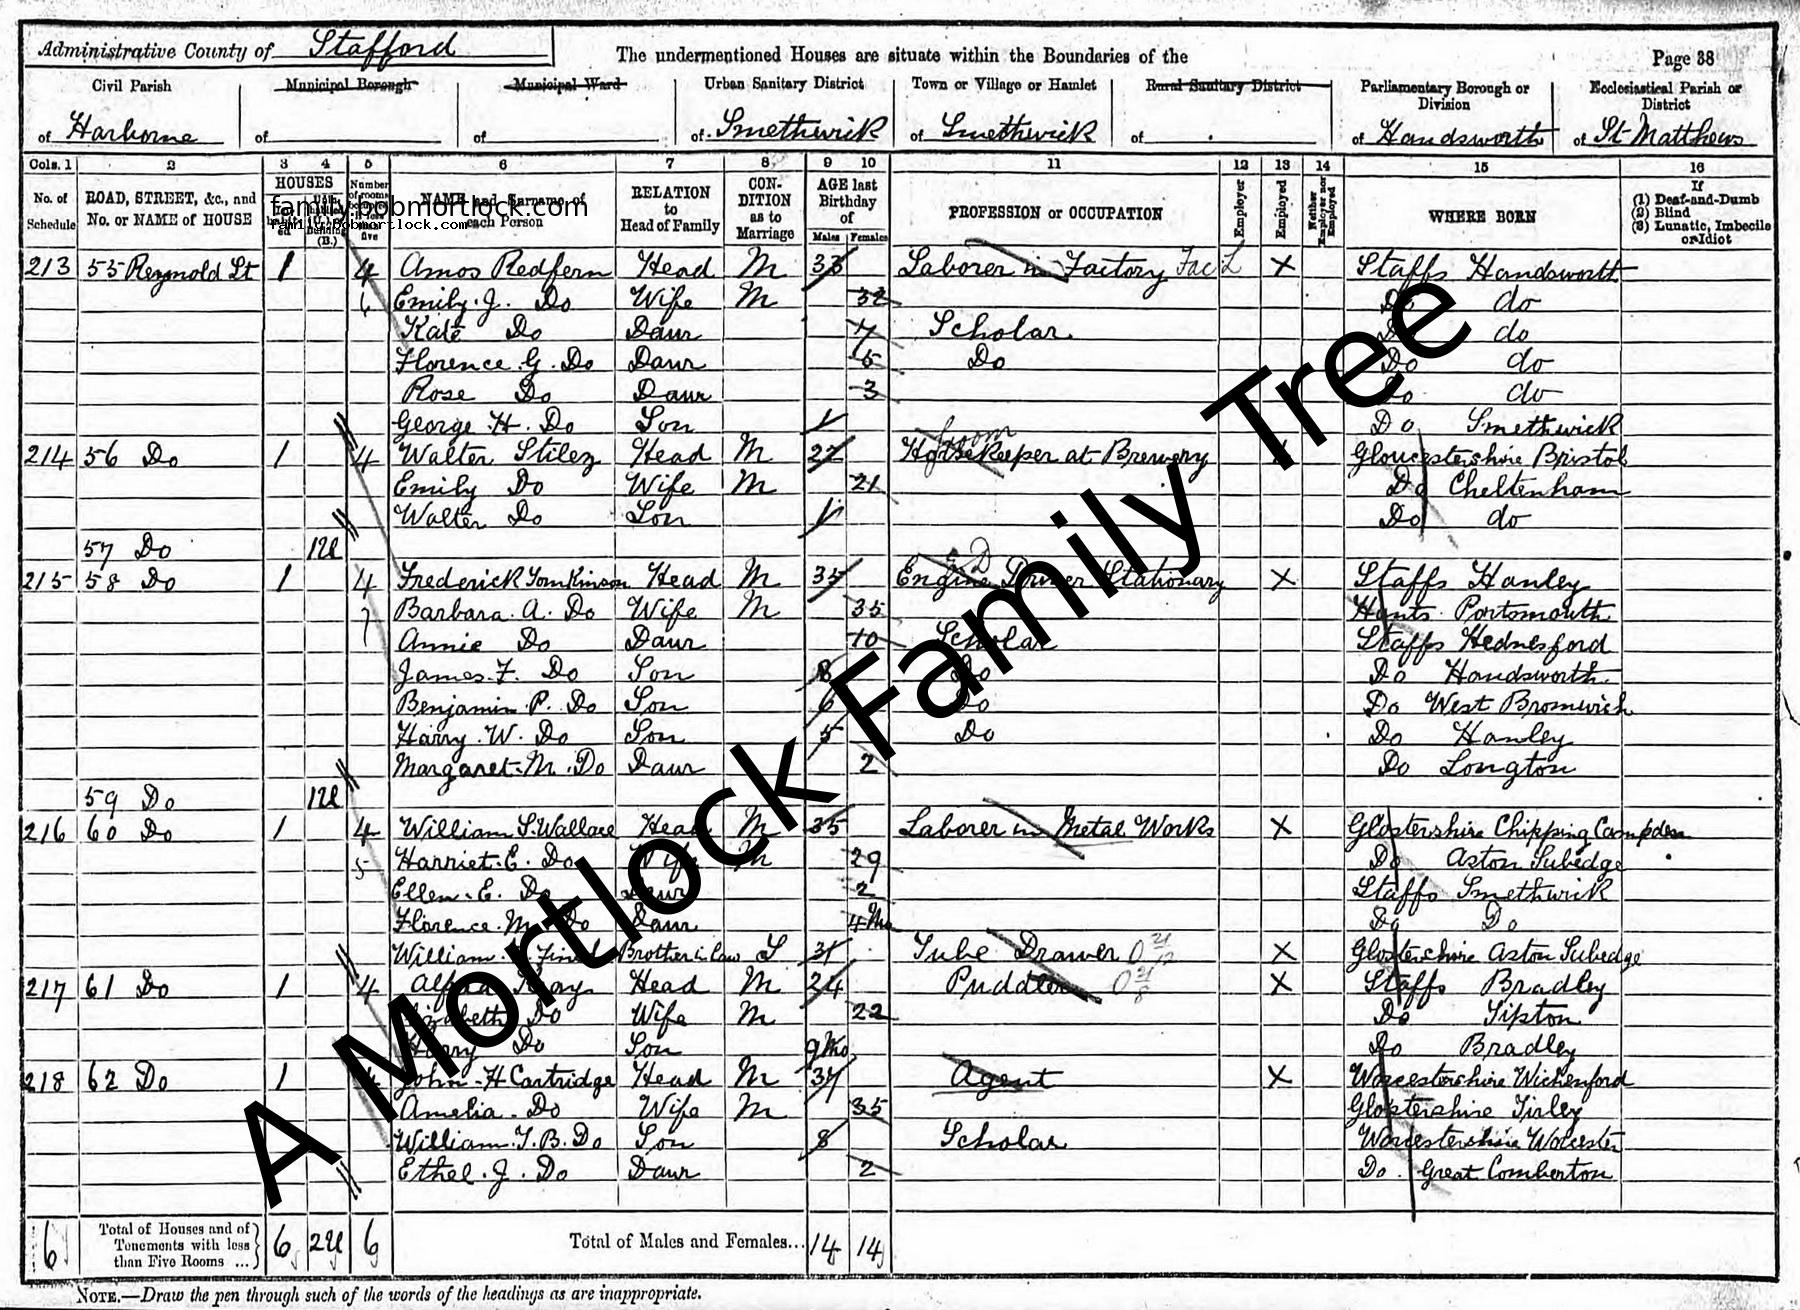 Administrative County of Stafford
The undermentioned Houses are situate within the Boundaries of the
Page 38
Civil Parish of Harborne
Municipal Borough of
Municipal Ward of
Urban Sanitary District of Smethwick
Town or Village or Hamlet of Smethwick
Rural Sanitary District of
Parliamentary Borough or Division of Handsworth
Ecclesiastical Parish or District of St Matthews
Cols. 1 2 3 4 5 6 7 8 9 10 11 12 13 14 15 16
No. of Schedule
ROAD, STREET, &c., and No. or NAME of HOUSE
HOUSES
NAME and Surname of each Person
RELATION to Head of Family
CON-DITION as to Marriage
AGE last Birthday of
Males Females
PROFESSION or OCCUPATION
Employer
Employed
Neither Employer nor Employed
WHERE BORN
If (1) Deaf-and-Dumb (2) Blind (3) Lunatic, Imbecile or Idiot
family.bobmortlock.com
family.bobmortlock.com
213 55 Reynold St 1 4 Amos Redfern Head M 33 Laborer in Factory Fac L X Staffs Handsworth
6 Emily. J. Do Wife M 32 Do do
Kate Do Daur 7 Scholar Do do
Florence. G. Do Daur 5 Do Do do
Rose Do Daur 3 Do do
George. H. Do Son 1 Do Smethwick
214 56 Do 1 4 Walter Stiley Head M 22 Horsekeeper at Brewery groom Gloucestershire Bristol
Emily Do Wife M 21 Do Cheltenham
Walter Do Son 1 Do do
57 Do 1U
215 58 Do 1 4 Frederick Tomkinson Head M 35 Engine Driver Stationary X Staffs Hanley
7 Barbara. A. Do Wife M 35 Hants Portsmouth
Annie Do Daur 10 Scholar Staffs Hednesford
James. F. Do Son 8 Do Do Handsworth
Benjamin. P. Do Son 6 Do Do West Bromwich
Harry. W. Do Son 5 Do Do Hanley
Margaret. M. Do Daur 2 Do Longton
59 Do 1U
216 60 Do 1 4 William S. Wallace Head M 35 Laborer in Metal Works X Glostershire Chipping Campden
5 Harriet. E. Do Wife M 29 Do Aston Subedge
Ellen. E. Do Daur 2 Staffs Smethwick
Florence. M. Do Daur 4 Mo Do Do
William. Brother in law S 31 Tube Drawer X Glostershire Aston Subedge
217 61 Do 1 4 Head M 24 Puddler X Staffs Bradley
Elizabeth Do Wife M 22 Do Tipton
Harry Do Son 9 Mo Do Bradley
218 62 Do 1 4 John. H Cartridge Head M 37 Agent X Worcestershire Wichenford
Amelia. Do Wife M 35 Glostershire Tirley
William. T. B. Do Son 8 Scholar Worcestershire Worcester
Ethel. J. Do Daur 2 Do. Great Comberton
6 Total of Houses and of Tenements with less than Five Rooms ... 6 2U 6 Total of Males and Females... 14 14
NOTE.—Draw the pen through such of the words of the headings as are inappropriate.
A Mortlock Family Tree